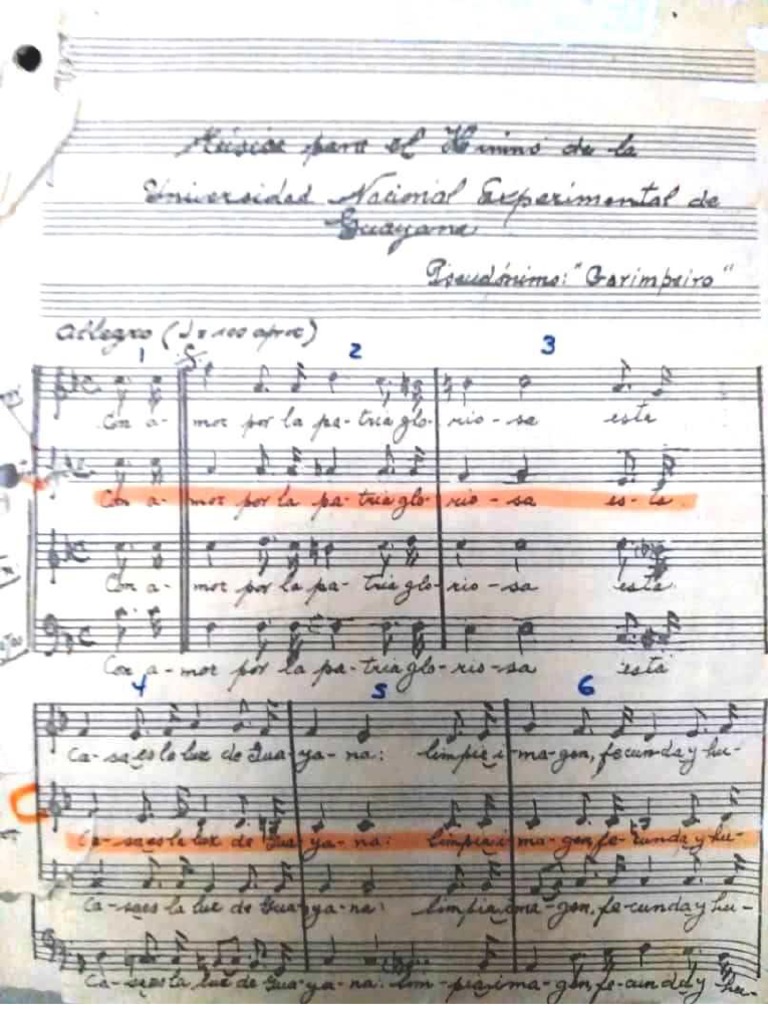 Música para el Himno de la
Universidad Nacional Experimental de
Guayana
Pseudónimo: "Garimpeiro"
Allegro (♩= 100 aprox)
1 2 3
Con a- mor por la pa- tria glo- rio - sa esta
Con a- mor por la pa- tria glo- rio - sa es- ta
Con a- mor por la pa- tria glo- rio - sa esta
Con a- mor por la pa- tria glo- rio - sa esta
4 5 6
Ca- sa es la luz de Gua- ya- na: limpia i- ma- gen, fe cunda y hu-
Ca- sa es la luz de Gua- ya- na: limpia i- ma- gen, fe- cunda y hu-
Ca- sa es la luz de Gua- ya- na: limpia ima- gen, fe- cunda y hu-
Ca- sa es la luz de Gua- ya- na: lim- pia ima- gen, fe- cunda y hu-